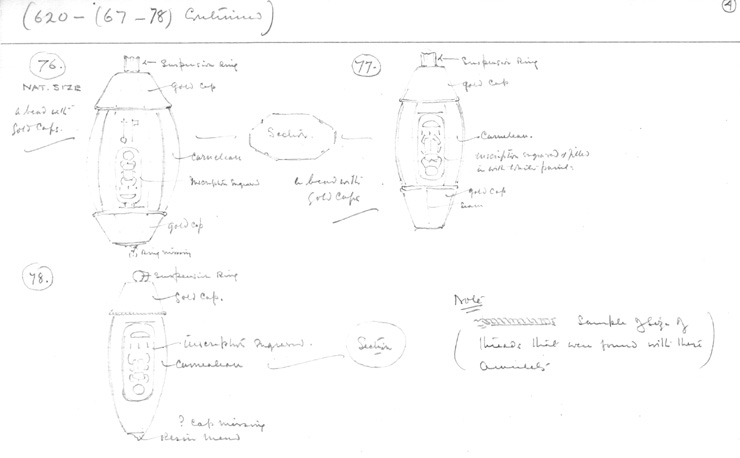 (620 - (67 - 78) Continued)
4
76.
NAT. SIZE
a bead with
Gold Caps.
Suspension Ring
Gold Cap
Carnelian
Inscription Engraved
Gold Cap
Ring missing
Section.
a bead with
Gold Caps
77.
Suspension Ring
gold Cap
Carnelian.
inscription engraved & filled
in with
gold Cap
78.
Suspension Ring
Gold Cap.
inscription Engraved.
Carnelian
? Cap missing
Section
Note
Sample of size of
threads that were found with these